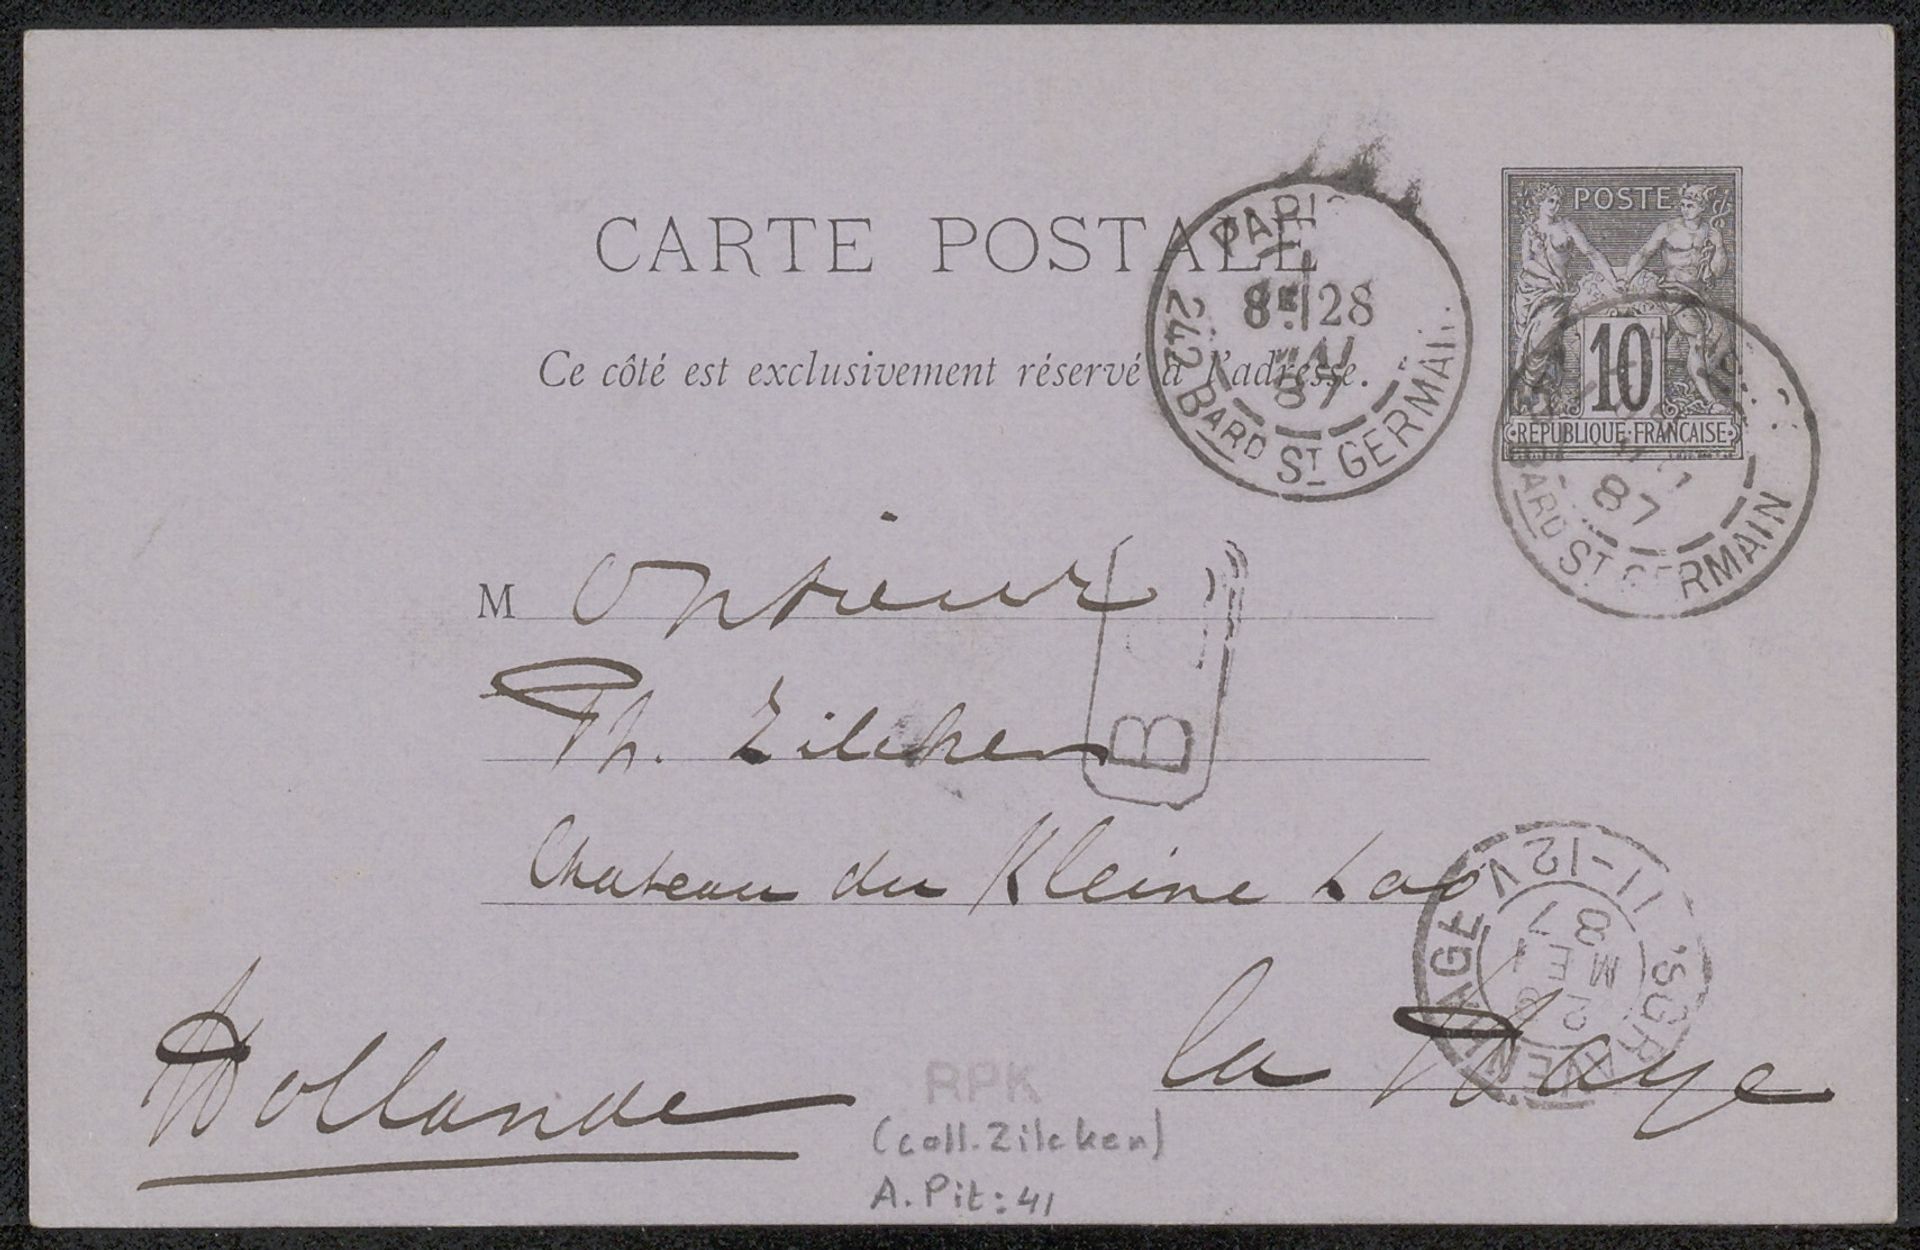 CARTE POSTALE
Ce côté est exclusivement réservé à l'adresse.
PARIS
8E 28
MAI
87
242 BARD ST GERMAIN
POSTE
10
REPUBLIQUE FRANCAISE
87
BARD ST GERMAIN
Monsieur
Th. Zilcken
B
Chateau du Kleine Loo
la Haye
Hollande
'SGRAVENHAGE
11-12V
RPK
(coll. Zilcken)
A. Pit: 41